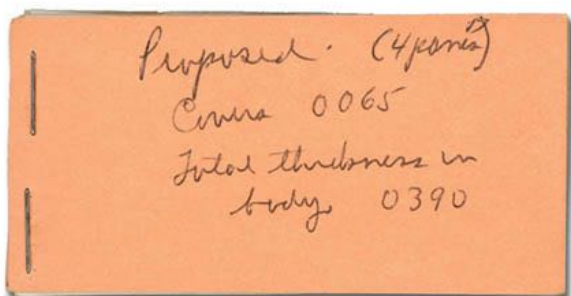 Proposed. (4 panes)
Covers 0065
Total thickness in
body. 0390